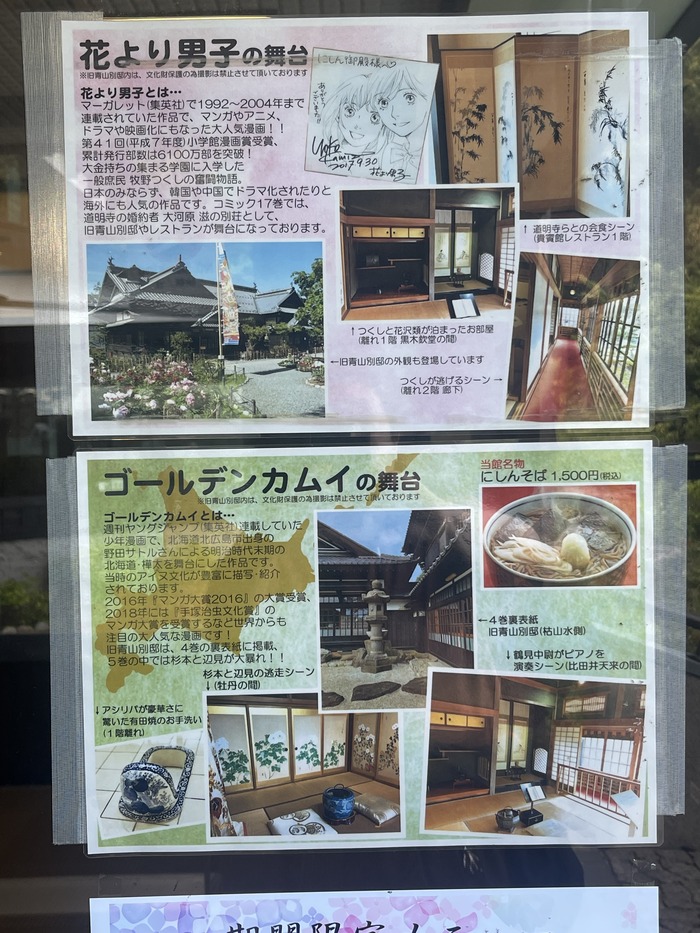 花より男子の舞台
※旧青山別邸内は、文化財保護の為撮影は禁止させて頂いております
花より男子とは…
マーガレット(集英社)で1992～2004年まで
連載されていた作品で、マンガやアニメ、
ドラマや映画化にもなった大人気漫画！！
第41回(平成7年度)小学館漫画賞受賞、
累計発行部数は6100万部を突破！
大金持ちの集まる学園に入学した
一般庶民 牧野つくしの奮闘物語。
日本のみならず、韓国や中国でドラマ化されたりと
海外にも人気の作品です。コミック17巻では、
道明寺の婚約者 大河原 滋の別荘として、
旧青山別邸やレストランが舞台になっております。
にしん御殿様へ
ありがとうございました!!
2017.9.30
花より男子
↑ 道明寺らとの会食シーン
(貴賓館レストラン1階)
↑つくしと花沢類が泊まったお部屋
(離れ1階 黒木欽堂の間)
←旧青山別邸の外観も登場しています
つくしが逃げるシーン→
(離れ2階 廊下)
ゴールデンカムイの舞台
※旧青山別邸内は、文化財保護の為撮影は禁止させて頂いております
ゴールデンカムイとは…
週刊ヤングジャンプ(集英社)連載していた
少年漫画で、北海道北広島市出身の
野田サトルさんによる明治時代末期の
北海道・樺太を舞台にした作品です。
当時のアイヌ文化が豊富に描写・紹介
されております。
2016年『マンガ大賞2016』の大賞受賞、
2018年には『手塚治虫文化賞』の
マンガ大賞を受賞するなど世界からも
注目の大人気な漫画です！
旧青山別邸は、4巻の裏表紙に掲載、
5巻の中では杉本と辺見が大暴れ！！
当館名物
にしんそば 1,500円(税込)
←4巻裏表紙
旧青山別邸(枯山水側)
↓鶴見中尉がピアノを
演奏シーン(比田井天来の間)
杉本と辺見の逃走シーン
↓(牡丹の間)
↓アシリパが豪華さに
驚いた有田焼のお手洗い
(1階離れ)